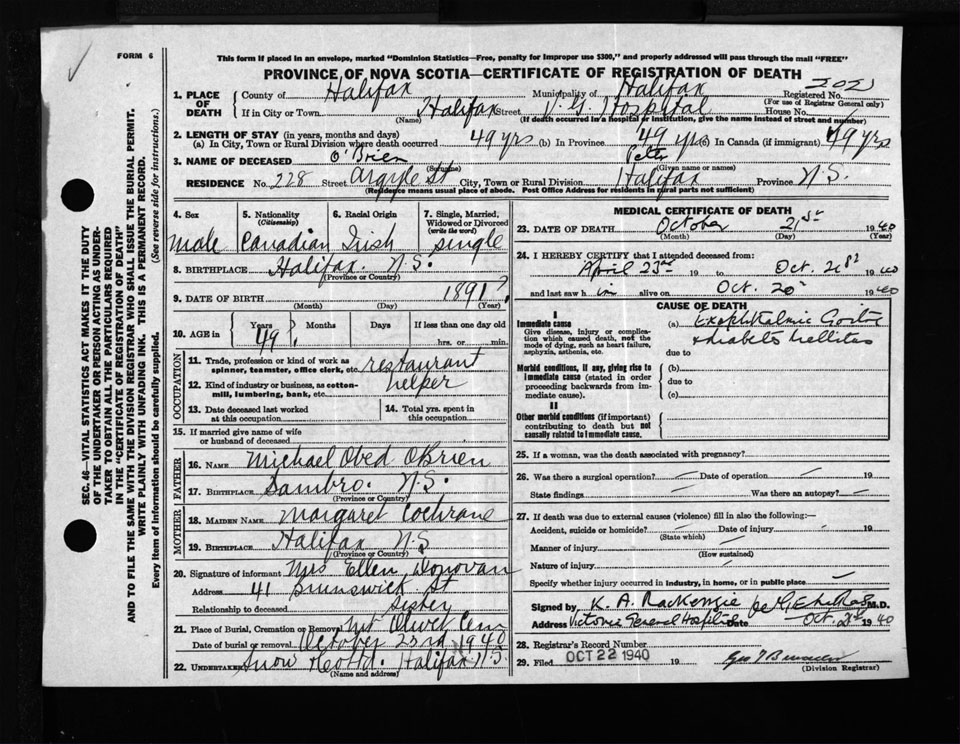 FORM 6
This form if placed in an envelope, marked "Dominion Statistics—Free, penalty for improper use $300," and properly addressed will pass through the mail "FREE"
PROVINCE OF NOVA SCOTIA—CERTIFICATE OF REGISTRATION OF DEATH
1. PLACE OF DEATH County of Halifax Municipality of Halifax Registered No.
(For use of Registrar General only)
If in City or Town Halifax Street V. G. Hospital House No.
(Name) (If death occurred in a hospital or institution, give the name instead of street and number)
2. LENGTH OF STAY (in years, months and days)
(a) In City, Town or Rural Division where death occurred 49 yrs (b) In Province 49 yrs (c) In Canada (if immigrant) 49 yrs
3. NAME OF DECEASED O'Brien Peter
(Surname) (Given name or names)
RESIDENCE No. 228 Street Argyle St City, Town or Rural Division Halifax Province N.S.
(Residence means usual place of abode. Post Office Address for residents in rural parts not sufficient)
SEC. 46—VITAL STATISTICS ACT MAKES IT THE DUTY
OF THE UNDERTAKER OR PERSON ACTING AS UNDER-
TAKER TO OBTAIN ALL THE PARTICULARS REQUIRED
IN THE "CERTIFICATE OF REGISTRATION OF DEATH"
AND TO FILE THE SAME WITH THE DIVISION REGISTRAR WHO SHALL ISSUE THE BURIAL PERMIT.
WRITE PLAINLY WITH UNFADING INK. THIS IS A PERMANENT RECORD.
Every item of Information should be carefully supplied. (See reverse side for instructions.)
4. Sex 5. Nationality (Citizenship) 6. Racial Origin 7. Single, Married, Widowed or Divorced (write the word)
Male Canadian Irish Single
8. BIRTHPLACE Halifax N.S.
(Province or Country)
9. DATE OF BIRTH 1891?
(Month) (Day) (Year)
10. AGE in Years Months Days If less than one day old
49 hrs. or min.
OCCUPATION
11. Trade, profession or kind of work as spinner, teamster, office clerk, etc. restaurant
12. Kind of industry or business, as cotton-mill, lumbering, bank, etc. helper
13. Date deceased last worked at this occupation
14. Total yrs. spent in this occupation
15. If married give name of wife or husband of deceased
FATHER
16. NAME Michael Obed O'Brien
17. BIRTHPLACE Sambro. N.S.
(Province or Country)
MOTHER
18. MAIDEN NAME Margaret Cochrane
19. BIRTHPLACE Halifax N.S
(Province or Country)
20. Signature of informant Mrs Ellen Donovan
Address 41 Brunswick St
Relationship to deceased Sister
21. Place of Burial, Cremation or Removal Mt Olivet Cem
Date of burial or removal October 23rd 1940
22. UNDERTAKER Snow Halifax N.S.
(Name and address)
MEDICAL CERTIFICATE OF DEATH
23. DATE OF DEATH October 21st 1940
(Month) (Day) (Year)
24. I HEREBY CERTIFY that I attended deceased from:
April 23rd 19 to Oct. 21st 1940
and last saw him alive on Oct. 20 1940
CAUSE OF DEATH
I
Immediate cause
Give disease, injury or complication which caused death, not the mode of dying, such as heart failure, asphyxia, asthenia, etc.
(a) Exophthalmic Goitre
due to
Morbid conditions, if any, giving rise to immediate cause (stated in order proceeding backwards from immediate cause).
(b)
due to
(c)
II
Other morbid conditions (if important) contributing to death but not causally related to immediate cause.
25. If a woman, was the death associated with pregnancy?
26. Was there a surgical operation? Date of operation 19
State findings Was there an autopsy?
27. If death was due to external causes (violence) fill in also the following:—
Accident, suicide or homicide? Date of injury 19
(State which)
Manner of injury
(How sustained)
Nature of injury
Specify whether injury occurred in industry, in home, or in public place
Signed by K. A. MacKenzie M.D.
Address Victoria General Hospital Date Oct. 21st 1940
28. Registrar's Record Number
29. Filed OCT 22 1940 19
(Division Registrar)